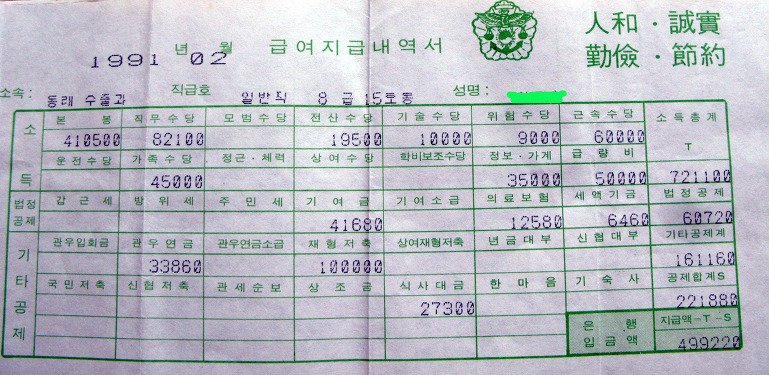 人和 · 誠實
1991 년 02 월 급여지급내역서
勤儉 · 節約
소속 : 동래 수출과 직급호 일반직 8 급 15호봉 성명 :
소 본 봉 직무수당 모범수당 전산수당 기술수당 위험수당 근속수당 소득총계
410500 82100 19500 10000 9000 60000 T
운전수당 가족수당 정근 · 체력 상여수당 학비보조수당 정보 · 가계 급량비
득 45000 35000 50000 721100
법정 갑근세 방위세 주민세 기여금 기여소급 의료보험 세액기금 법정공제
공제 41680 12580 6460 60720
관우입회금 관우연금 관우연금소급 재형저축 상여재형저축 년금대부 신협대부 기타공제계
기 33860 100000 161160
타 국민저축 신협저축 관세순보 상조금 식사대금 한마음 기숙사 공제합계S
공 27300 221880
제 은 행 지급액-T-S
입금액 499220